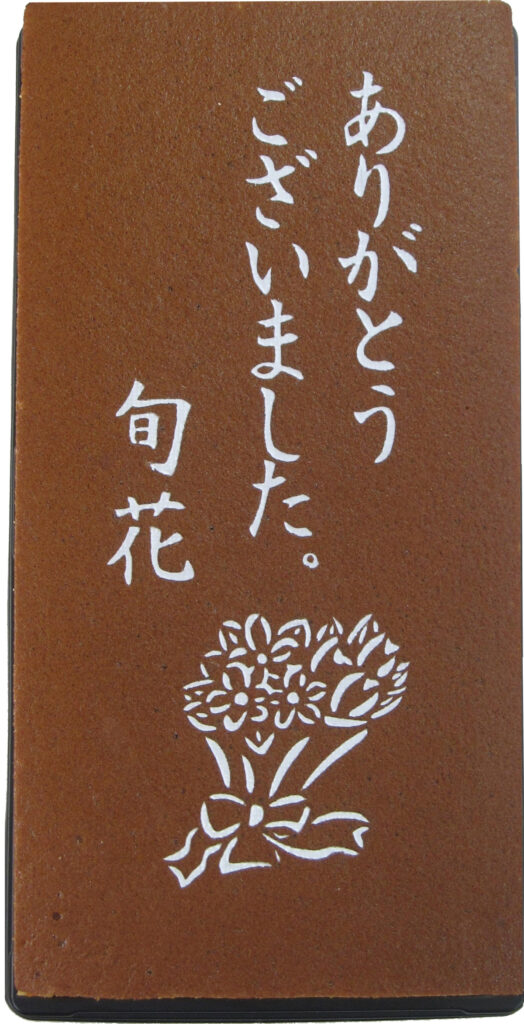 ありがとう
ございました。
旬花